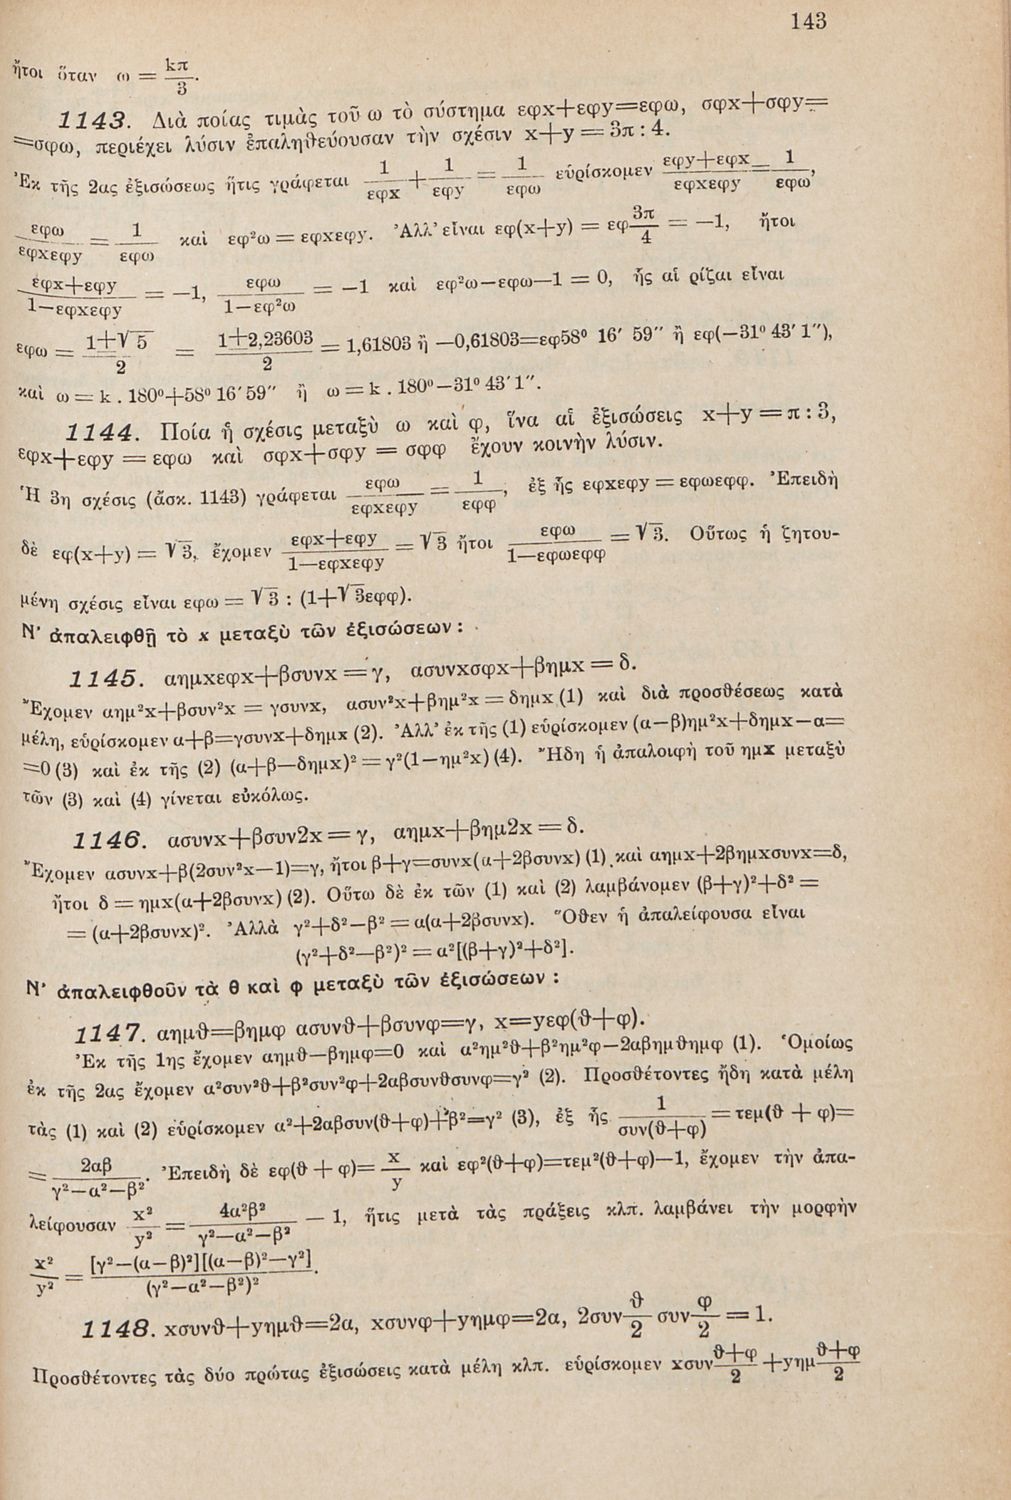 143
ἤτοι ὅταν ω = kπ/3.
1143. Διὰ ποίας τιμὰς τοῦ ω τὸ σύστημα εφx+εφy=εφω, σφx+σφy=
=σφω, περιέχει λύσιν ἐπαληθεύουσαν τὴν σχέσιν x+y = 3π : 4.
Ἐκ τῆς 2ας ἐξισώσεως ἥτις γράφεται 1/εφx + 1/εφy = 1/εφω εὑρίσκομεν (εφy+εφx)/(εφxεφy) = 1/εφω,
εφω/(εφxεφy) = 1/εφω καὶ εφ²ω = εφxεφy. Ἀλλ' εἶναι εφ(x+y) = εφ 3π/4 = —1, ἤτοι
(εφx+εφy)/(1—εφxεφy) = —1, εφω/(1—εφ²ω) = —1 καὶ εφ²ω—εφω—1 = 0, ἧς αἱ ρίζαι εἶναι
εφω = (1±√5)/2 = (1±2,23603)/2 = 1,61803 ἢ —0,61803=εφ58⁰ 16′ 59″ ἢ εφ(—31⁰ 43′ 1″),
καὶ ω = k . 180⁰+58⁰ 16′ 59″ ἢ ω = k . 180⁰—31⁰ 43′ 1″.
1144. Ποία ἡ σχέσις μεταξὺ ω καὶ φ, ἵνα αἱ ἐξισώσεις x+y = π : 3,
εφx+εφy = εφω καὶ σφx+σφy = σφφ ἔχουν κοινὴν λύσιν.
Ἡ 3η σχέσις (ἄσκ. 1143) γράφεται εφω/(εφxεφy) = 1/εφφ, ἐξ ἧς εφxεφy = εφωεφφ. Ἐπειδὴ
δὲ εφ(x+y) = √3, ἔχομεν (εφx+εφy)/(1—εφxεφy) = √3 ἤτοι εφω/(1—εφωεφφ) = √3. Οὕτως ἡ ζητου-
μένη σχέσις εἶναι εφω = √3 : (1+√3εφφ).
Ν' ἀπαλειφθῇ τὸ x μεταξὺ τῶν ἐξισώσεων :
1145. αημxεφx+βσυνx = γ, ασυνxσφx+βημx = δ.
Ἔχομεν αημ²x+βσυν²x = γσυνx, ασυν²x+βημ²x = δημx (1) καὶ διὰ προσθέσεως κατὰ
μέλη, εὑρίσκομεν α+β=γσυνx+δημx (2). Ἀλλ' ἐκ τῆς (1) εὑρίσκομεν (α—β)ημ²x+δημx—α=
=0 (3) καὶ ἐκ τῆς (2) (α+β—δημx)² = γ²(1—ημ²x) (4). Ἤδη ἡ ἀπαλοιφὴ τοῦ ημx μεταξὺ
τῶν (3) καὶ (4) γίνεται εὐκόλως.
1146. ασυνx+βσυν2x = γ, αημx+βημ2x = δ.
Ἔχομεν ασυνx+β(2συν²x—1)=γ, ἤτοι β+γ=συνx(α+2βσυνx) (1) καὶ αημx+2βημxσυνx=δ,
ἤτοι δ = ημx(α+2βσυνx) (2). Οὕτω δὲ ἐκ τῶν (1) καὶ (2) λαμβάνομεν (β+γ)²+δ² =
= (α+2βσυνx)². Ἀλλὰ γ²+δ²—β² = α(α+2βσυνx). Ὅθεν ἡ ἀπαλείφουσα εἶναι
(γ²+δ²—β²)² = α²[(β+γ)²+δ²].
Ν' ἀπαλειφθοῦν τὰ θ καὶ φ μεταξὺ τῶν ἐξισώσεων :
1147. αημθ=βημφ ασυνθ+βσυνφ=γ, x=yεφ(θ+φ).
Ἐκ τῆς 1ης ἔχομεν αημθ—βημφ=0 καὶ α²ημ²θ+β²ημ²φ—2αβημθημφ (1). Ὁμοίως
ἐκ τῆς 2ας ἔχομεν α²συν²θ+β²συν²φ+2αβσυνθσυνφ=γ² (2). Προσθέτοντες ἤδη κατὰ μέλη
τὰς (1) καὶ (2) εὑρίσκομεν α²+2αβσυν(θ+φ)+β²=γ² (3), ἐξ ἧς 1/συν(θ+φ) = τεμ(θ + φ)=
= 2αβ/(γ²—α²—β²). Ἐπειδὴ δὲ εφ(θ + φ)= x/y καὶ εφ²(θ+φ)=τεμ²(θ+φ)—1, ἔχομεν τὴν ἀπα-
λείφουσαν x²/y² = 4α²β²/(γ²—α²—β²) — 1, ἥτις μετὰ τὰς πράξεις κλπ. λαμβάνει τὴν μορφὴν
x²/y² = [γ²—(α—β)²][(α—β)²—γ²]/(γ²—α²—β²)².
1148. xσυνθ+yημθ=2α, xσυνφ+yημφ=2α, 2συν θ/2 συν φ/2 = 1.
Προσθέτοντες τὰς δύο πρώτας ἐξισώσεις κατὰ μέλη κλπ. εὑρίσκομεν xσυν (θ+φ)/2 +yημ (θ+φ)/2